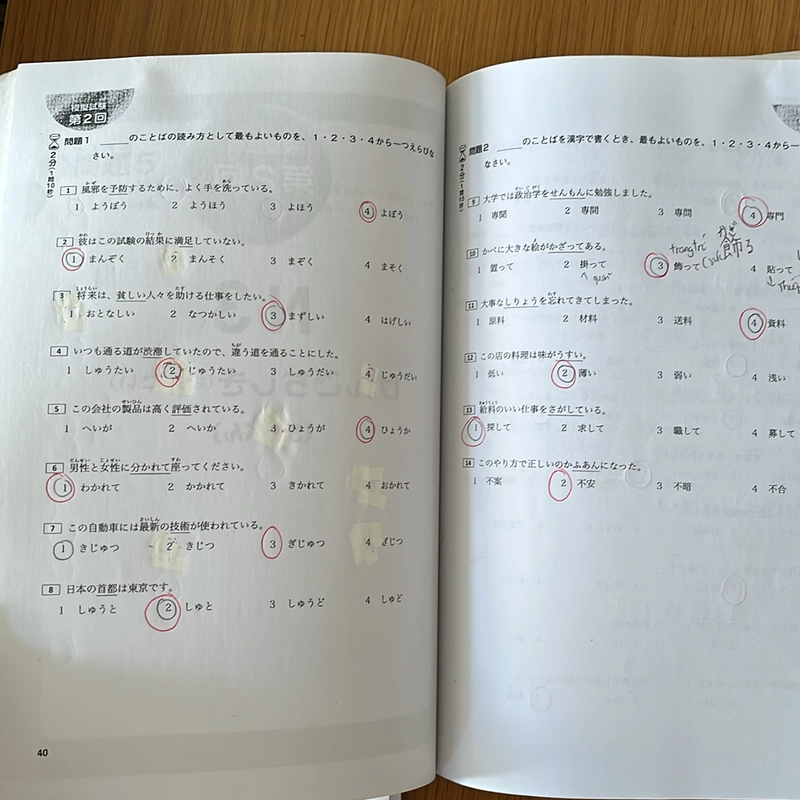 模擬試験
第2回
問題1 ＿＿＿のことばの読み方として最もよいものを、1・2・3・4から一つえらびな
さい。
2分(1問10秒)
1 風邪を予防するために、よく手を洗っている。
かぜ あら
1 ようぼう 2 ようほう 3 よほう 4 よぼう
2 彼はこの試験の結果に満足していない。
かれ けっか
1 まんぞく 2 まんそく 3 まぞく 4 まそく
3 将来は、貧しい人々を助ける仕事をしたい。
しょうらい たす
1 おとなしい 2 なつかしい 3 まずしい 4 はげしい
4 いつも通る道が渋滞していたので、違う道を通ることにした。
ちが
1 しゅうたい 2 じゅうたい 3 しゅうだい 4 じゅうだい
5 この会社の製品は高く評価されている。
せいひん
1 へいが 2 へいか 3 ひょうが 4 ひょうか
6 男性と女性に分かれて座ってください。
だんせい じょせい すわ
1 わかれて 2 かかれて 3 きかれて 4 おかれて
7 この自動車には最新の技術が使われている。
さいしん
1 きじゅつ 2 きじつ 3 ぎじゅつ 4 ぎじつ
8 日本の首都は東京です。
1 しゅうと 2 しゅと 3 しゅうど 4 しゅど
40
問題2 ＿＿＿のことばを漢字で書くとき、最もよいものを、1・2・3・4から一
なさい。
9 大学では政治学をせんもんに勉強しました。
せいじがく
1 専関 2 専問 3 専門 4 専門
10 かべに大きな絵がかざってある。
trangtrí
飾る
1 置って 2 掛って 3 飾って 4 貼って
11 大事なしりょうを忘れてきてしまった。
わす
1 原料 2 材料 3 送料 4 資料
12 この店の料理は味がうすい。
1 低い 2 薄い 3 弱い 4 浅い
13 給料のいい仕事をさがしている。
きゅうりょう
1 探して 2 求して 3 職して 4 募して
14 このやり方で正しいのかふあんになった。
1 不案 2 不安 3 不暗 4 不合